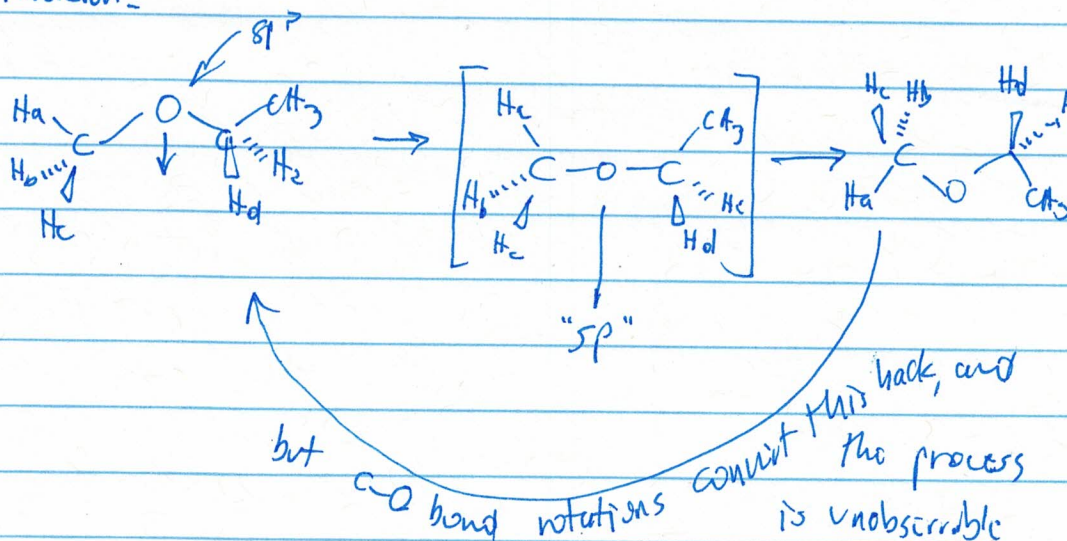 sp³
Ha
O
CH3
C
C
Hb
He
Hc
Hd
Hc
CH3
C-O-C
Hb
He
Hc
Hd
"sp"
Hc Hb
Hd
C
Ha
O
CH3
but C-O bond rotations convert this back, and
the process
is unobservable